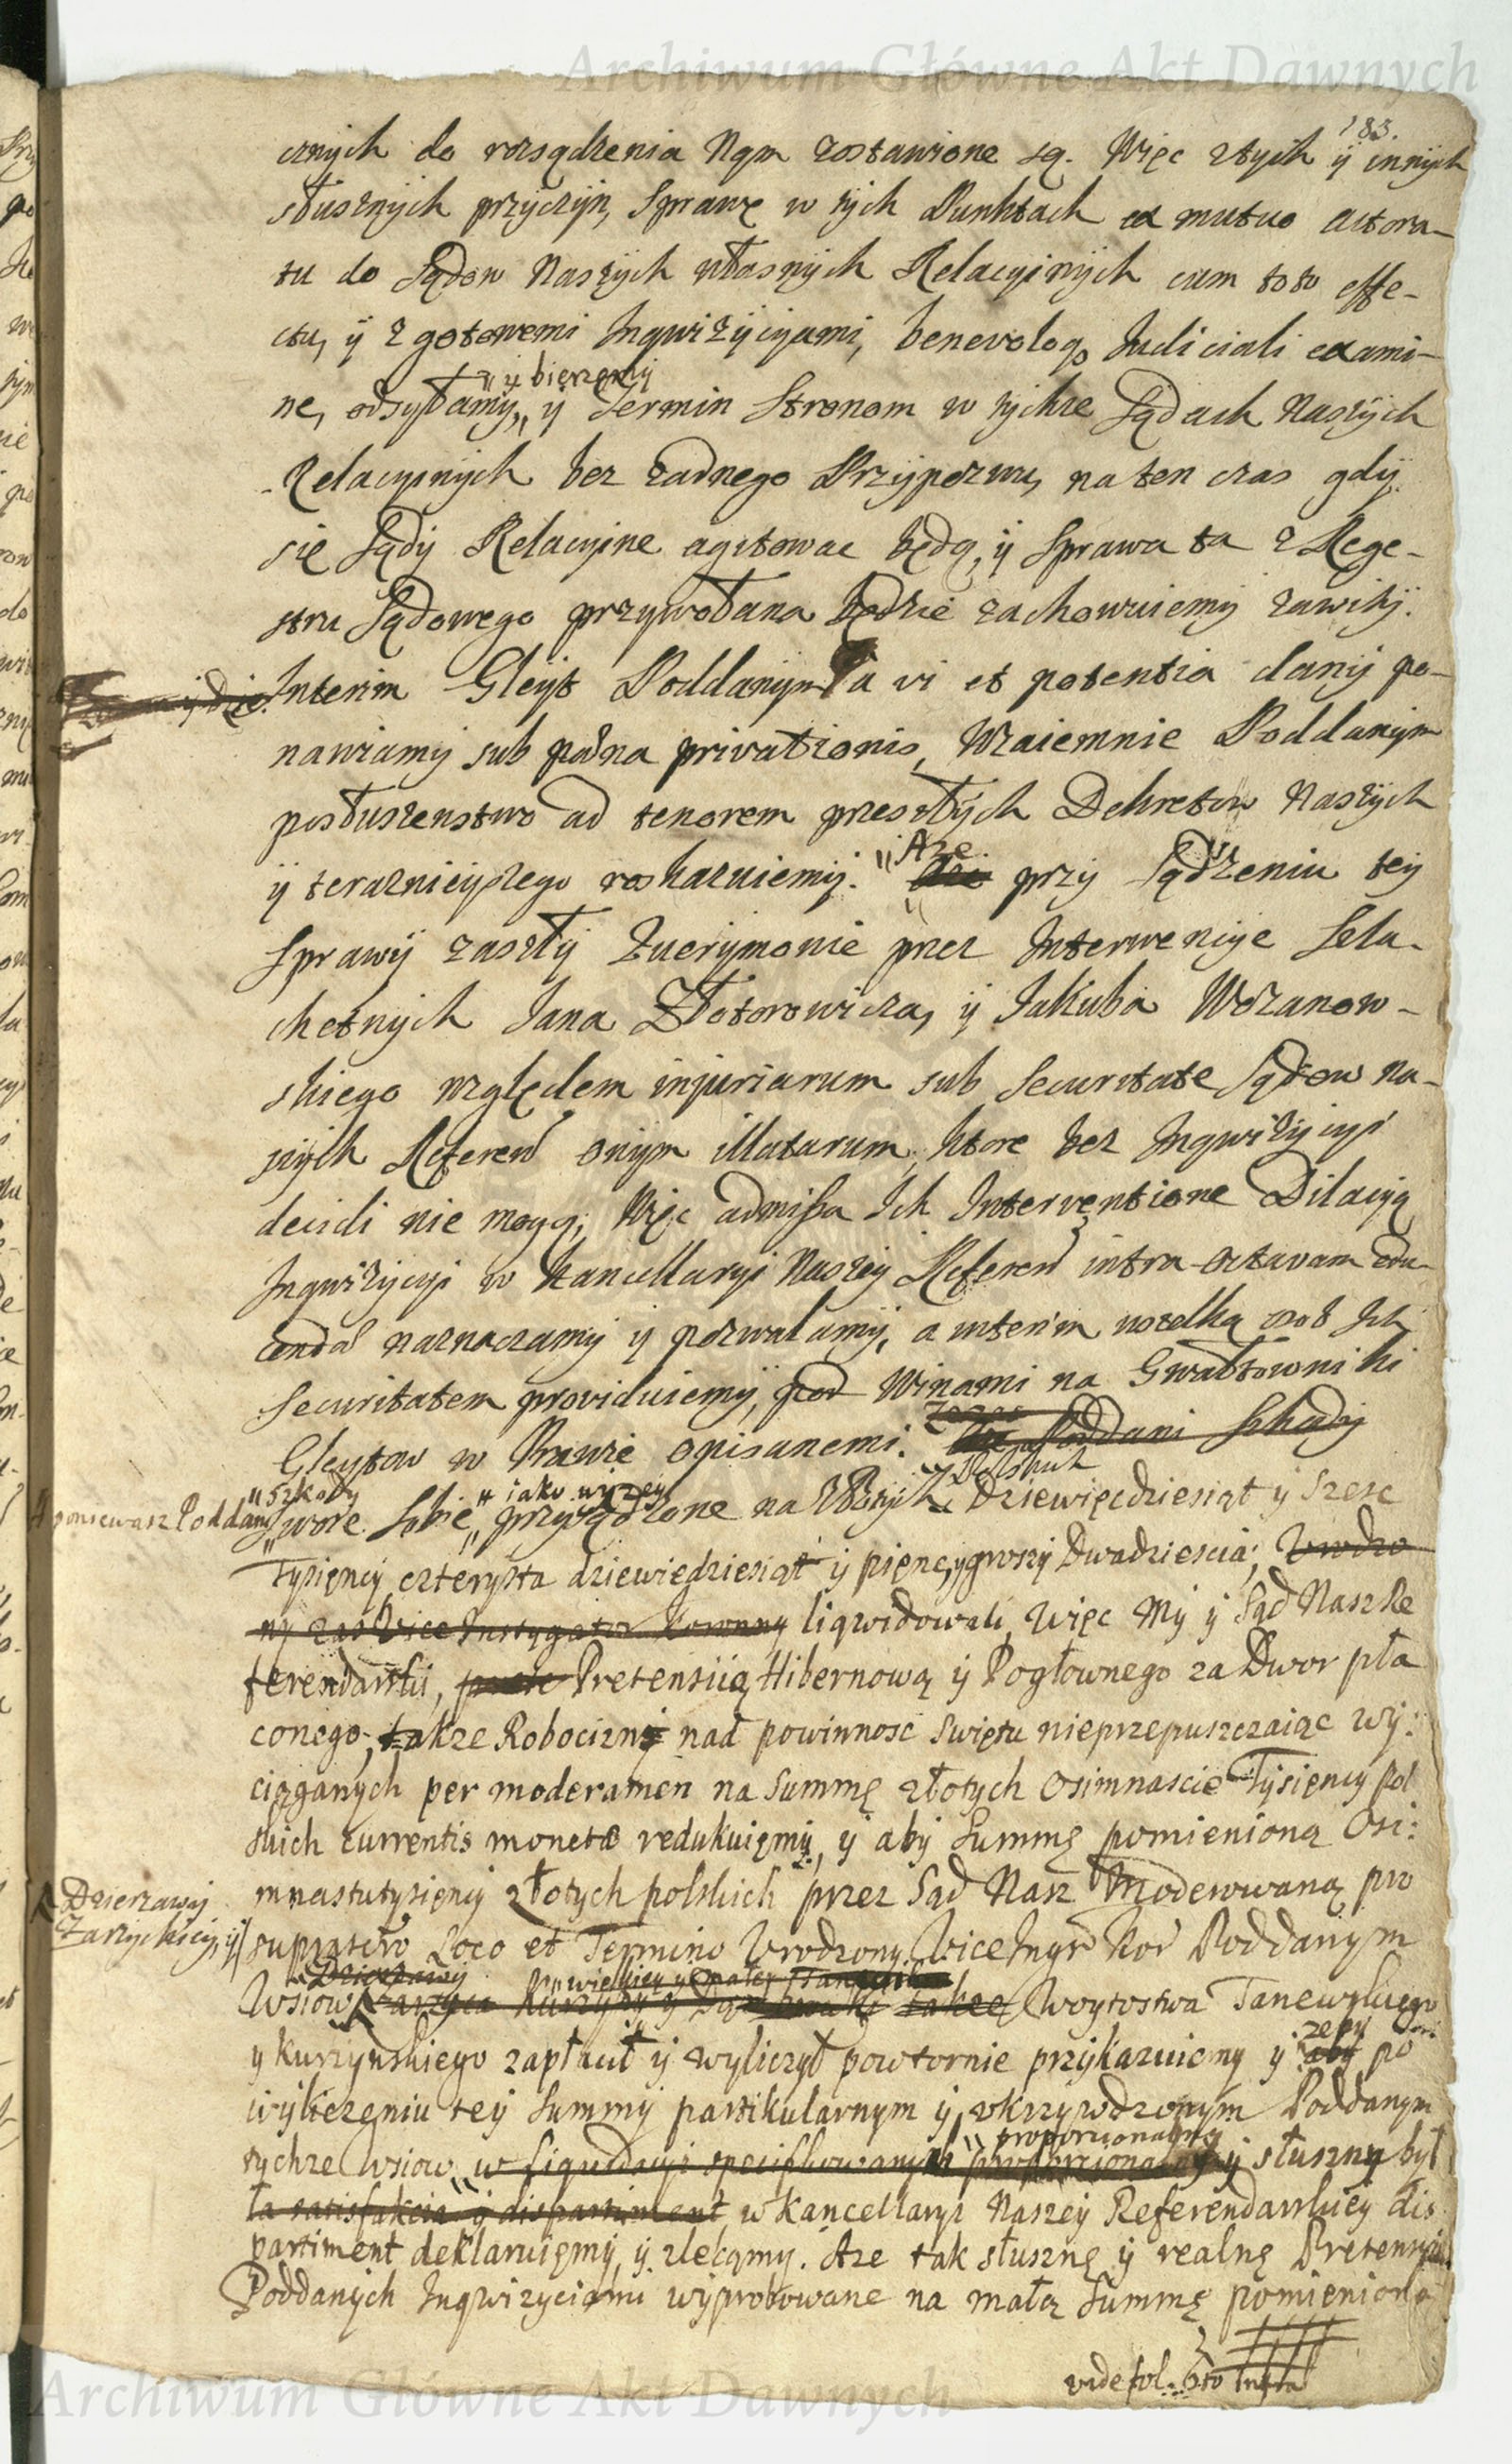 Archiwum Główne Akt Dawnych
183.
cznych do rozsądzenia Nąm zostawione są. Więc ztych ÿ innÿch
słusznÿch przÿczÿn, Sprawę w tÿch Punktach ex mutuo actora-
tu do Sądow Naszÿch własnÿch Relacyinÿch cum toto effe-
ctu, ÿ z gotowemi Inqwizÿcyami, benevoloq Judiciali exami-
"ÿ bierzemÿ
ne, odsyłamÿ, ÿ Termin Stronom w tÿchze Sądach Naszÿch
Relacyinÿch bez zadnego Przÿpozwu, na ten czas gdÿ
się Sądÿ Relacyine agitowac będą, ÿ Sprawa ta z Rege-
stru Sądowego przywołana będzie zachowuiemÿ zawitÿ.
Interim Gleÿt Poddanÿm a vi et potentia danÿ po-
nawiamÿ sub pœna privationis, Wzaiemnie Poddanÿm
posłuszenstwo ad tenorem przeszłÿch Dekretow Naszÿch
"Aze
ÿ teraznieÿszego roskazuiemÿ. przy Sądzeniu teÿ
Sprawÿ zaszłÿ Querÿmonie przez Interwencÿe Szla-
chetnÿch Jana Złotorowicza, ÿ Jakuba Wozanow-
skiego względem injuriarum sub Securitate Sądow na-
szÿch Referen onÿm illatarum, ktore bez Inqwizÿcyi
decidi nie mogą; Więc admissa Ich Interventione Dilacÿą
Inqwizÿcyi w Kancellaryi Naszeÿ Referen intra octavam edu-
cendæ naznaczamÿ ÿ pozwalamÿ, a interim wszelką Ich
Securitatem providuiemÿ, pod Winami na Gwałtowniki
Gleytow w Prawie opisanemi. Poddani Szkody
Polskich
"szkody
"iako wÿzeÿ
poniewasz Poddani
swoie Sobie przÿsądzone na Złotÿch Dziewięcdziesiąt ÿ szesc
Tysięncy czterysta dziewiedziesiąt ÿ pięnc, ygroszÿ Dwadziescia; Urodzo
ny zas Vice Instygator Koronny liqwidowali, więc Mÿ ÿ Sąd Nasz Re
ferendarski, Pretensiią Hibernową ÿ Pogłownego za Dwor pła
conego, takze Robocizny nad powinnosc swięta nieprzepuszczaiąc wÿ:
ciąganych per moderamen na Summę złotych Osimnascie Tÿsięncy pol
skich currentis monetæ redukuięmÿ, ÿ abÿ Summę pomienioną Osi:
mnastutysięncÿ złotych polskich przez Sąd Nasz Moderowaną, pro
Dzierzawÿ
Zarzyckieÿ, ÿ
suprascro Loco et Termino Urodzony Vice Ingr Kor Poddanÿm
Dzierzawÿ
Wsiow Woytostwa Tanewskiego
zeby
ÿ Kurzynskiego zapłacił ÿ wyliczył powtornie przÿkazuiemy ÿ aby po
wÿliczęniu teÿ Summÿ partikularnym ÿ ukrzywdzonÿm Poddanym
proporcionalnÿ
tychze wsiow w liquidacyi specifikowanych ÿ słusznÿ był
ta satisfakcia ÿ dispartiment, w Kancellaryi Naszeÿ Referendarskieÿ dis
partiment deklaruięmÿ, ÿ zlecąmÿ. Aze tak słusznę ÿ realnę Pretensyi
Poddanych Inqwizyciami wÿprobowane na małą Summę pomienioną
vide fol. 6to infra
Archiwum Główne Akt Dawnych